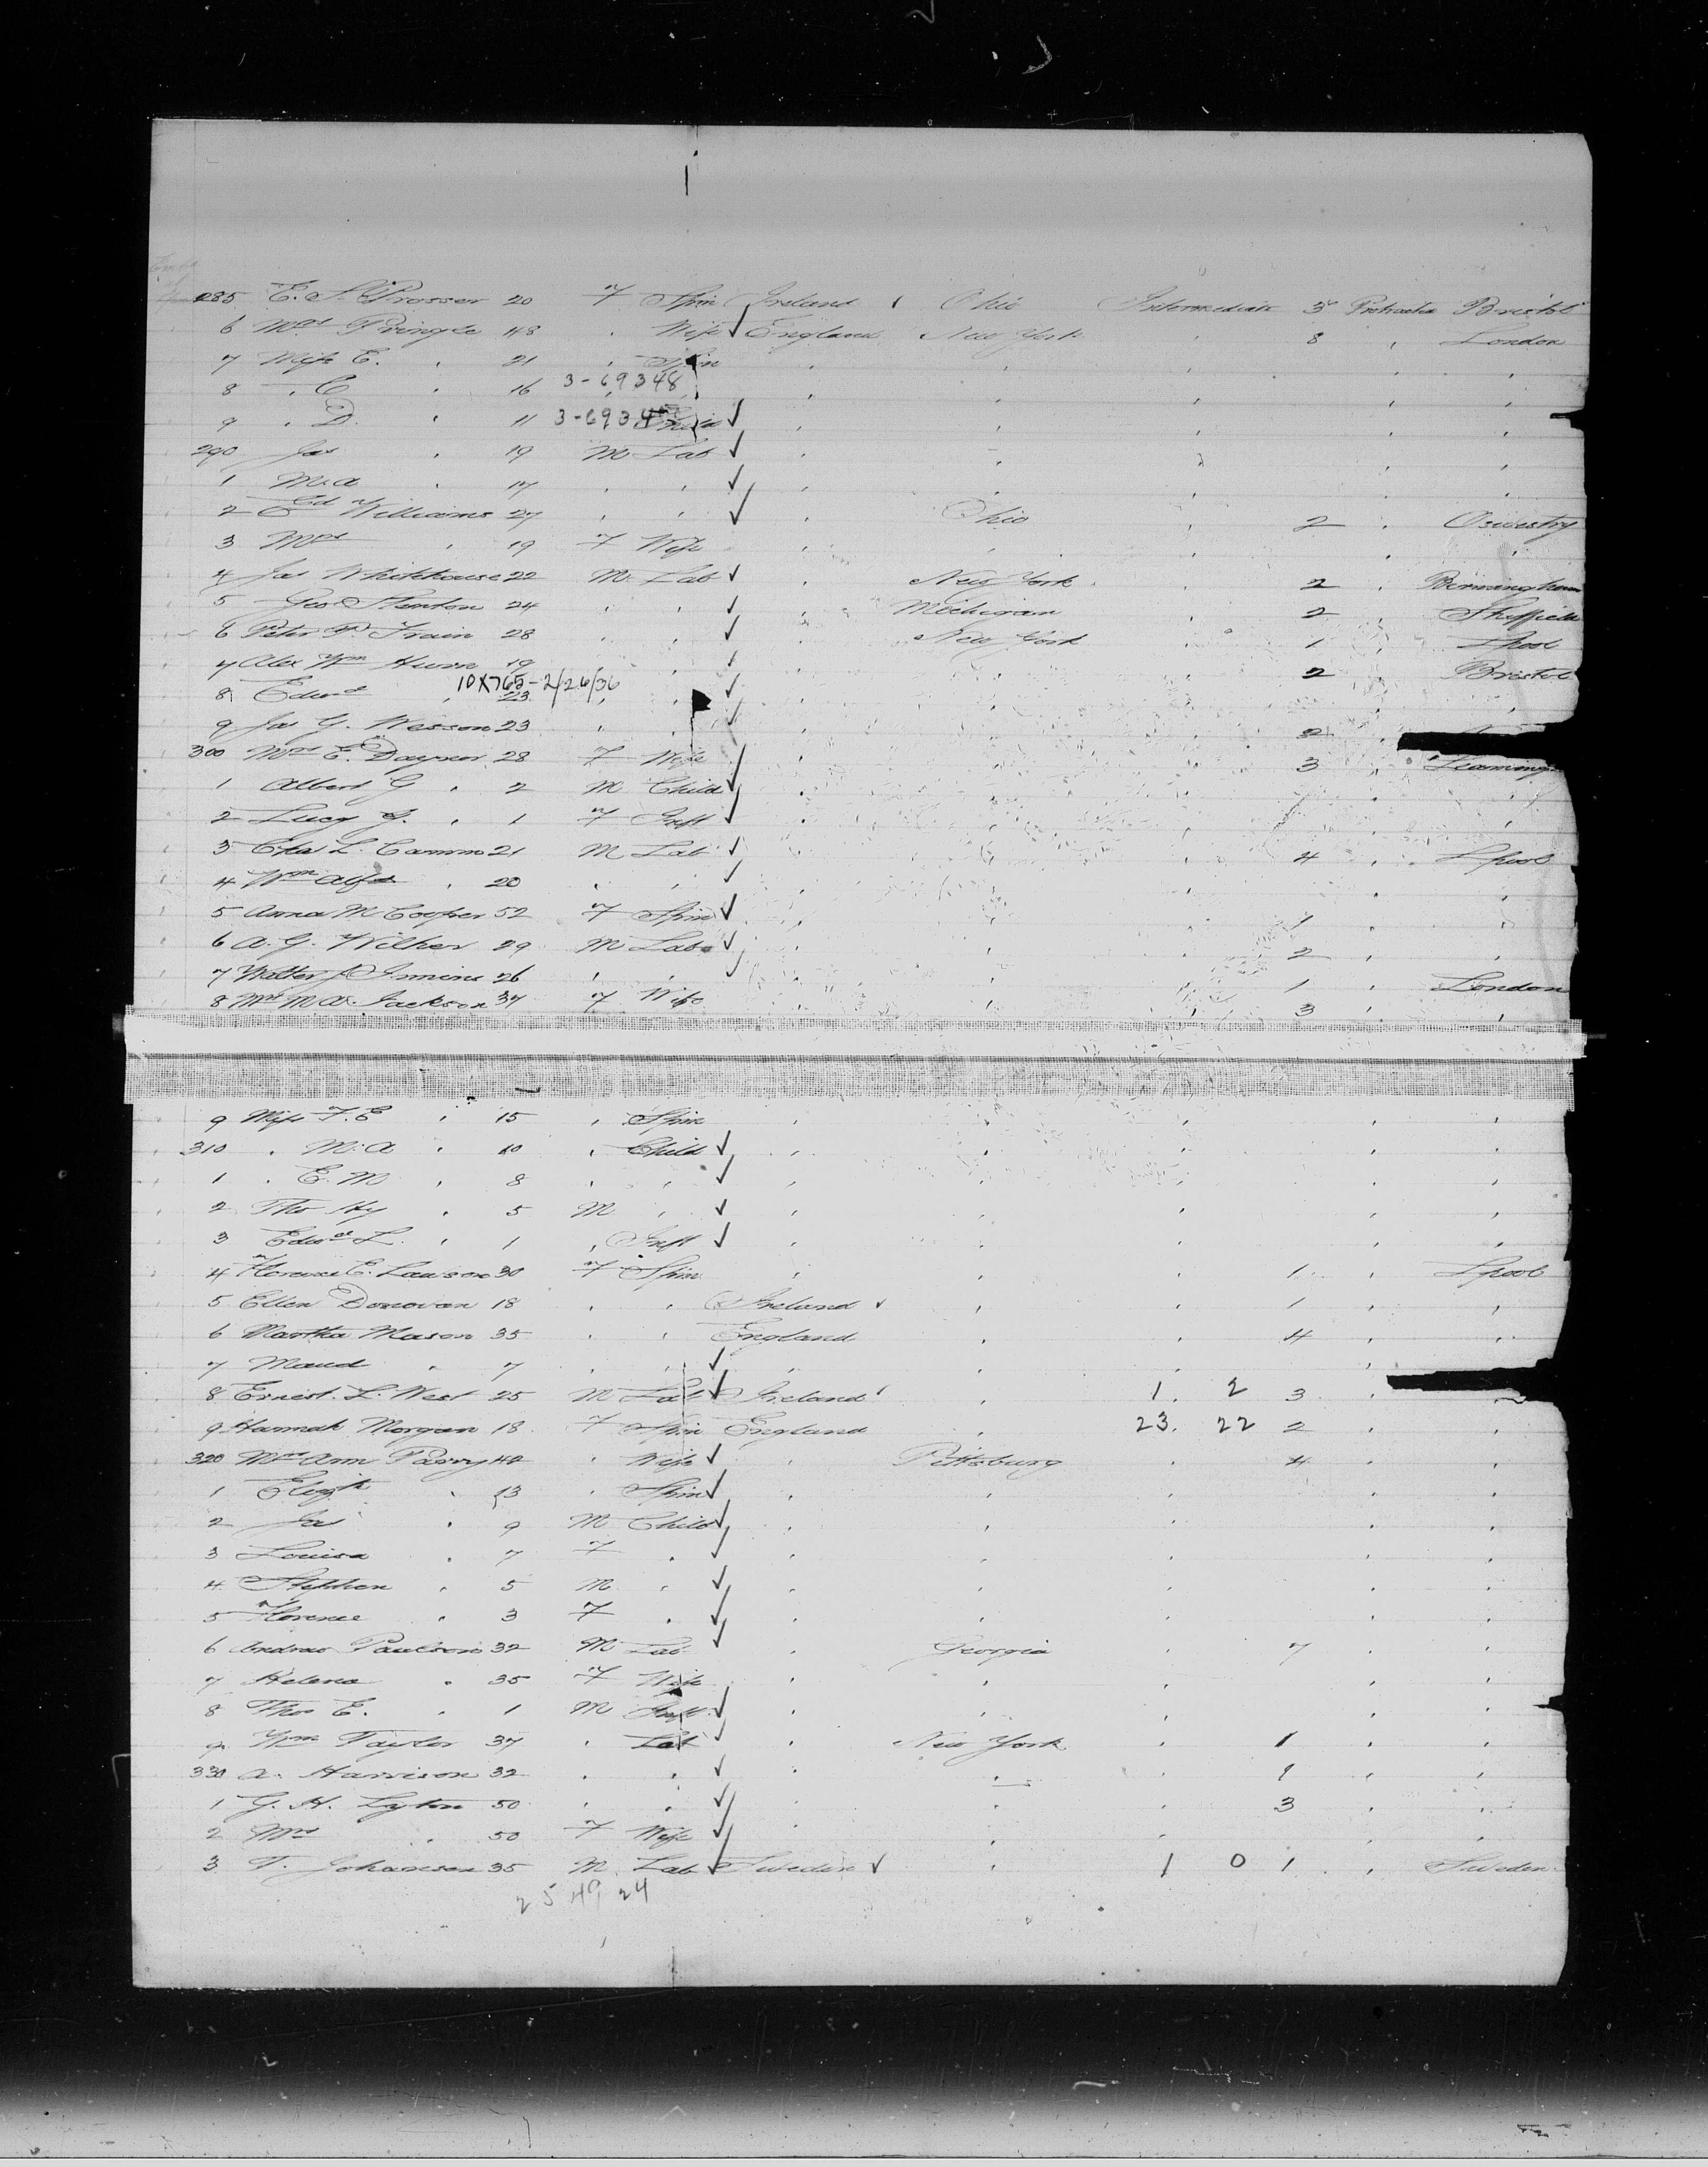 285 E. S. Prosser 20 F Spin Ireland Ohio Intermediate 3 Protracted Bristol
6 Mrs Pringle 48 " Wife England New York " 8 " London
7 Miss E. " 21 " Spin " " " " "
8 " E " 16 3-69348 " " " " "
9 " D. " 11 3-6934 Child " " " " "
290 Jas " 19 M Lab " " " " "
1 M. A " 17 " " " " " " "
2 Ed Williams 27 " " " Ohio " 2 " Oswestry
3 Mrs " 19 F Wife " " " " "
4 Jas Whitehouse 22 M Lab " New York " 2 " Birmingham
5 Geo Stenton 24 " " " Michigan " 2 " Sheffield
6 Peter P. Train 28 " " " New York " 1 " Lpool
7 Alex Wm Hurn 19 " " " " 2 " Bristol
8 Edwd " 23 10X765-2/26/36 " " " " " "
9 Jas G. Wesson 23 " " " " " 2
300 Mrs E. Daynor 28 F Wife " " " 3 " Leaming
1 Albert G " 2 M Child " " " " "
2 Lucy J. " 1 F Inft " " " " "
3 Chas L. Camm 21 M Lab " " " 4 " Lpool
4 Wm Alfd " 20 " " " " " " "
5 Anna M Cooper 52 F Spin " " " 1 " "
6 A. G. Wilher 29 M Lab " " " 2 " "
7 Walter J. 26 " " " " " 1 " London
8 Mrs M A. Jackson 37 F Wife " " " 3 " "
9 Miss F. E " 15 " Spin " " " " "
310 " M. A " 10 " Child " " " " "
1 " E. M " 8 " " " " " " "
2 Tho Hy " 5 M " " " " " "
3 Edwd L. " 1 " Inft " " " " "
4 Florence E. Lawson 30 F Spin " " " 1 " Lpool
5 Ellen Donovan 18 " " Ireland " " 1 " "
6 Martha Mason 35 " " England " " 4 " "
7 Maud " 7 " " " " " "
8 Ernest. L. West 25 M Lab Ireland " 1. 2 3 "
9 Hannah Morgan 18 F Spin England " 23. 22 2 " "
320 Mrs Ann Parry 42 " Wife " Pittsburg " 4 " "
1 Elizth " 13 " Spin " " " " "
2 Jas " 9 M Child " " " " "
3 Louisa " 7 F " " " " " "
4 Stephen " 5 M " " " " " "
5 Florence " 3 F " " " " " "
6 Andrew Paulson 32 M Lab " Georgia " 7 " "
7 Helena " 35 F Wife " " " " "
8 Thos E. " 1 M Inft " " " " "
9 Wm Taylor 37 " Lab " New York " 1 " "
330 A. Harrison 32 " " " " 1 " "
1 G. H. Lyton 50 " " " " " 3 " "
2 Mrs " 50 F Wife " " " " "
3 T. Johansen 35 M Lab Sweden " 1 0 1 " Sweden
25 49 24